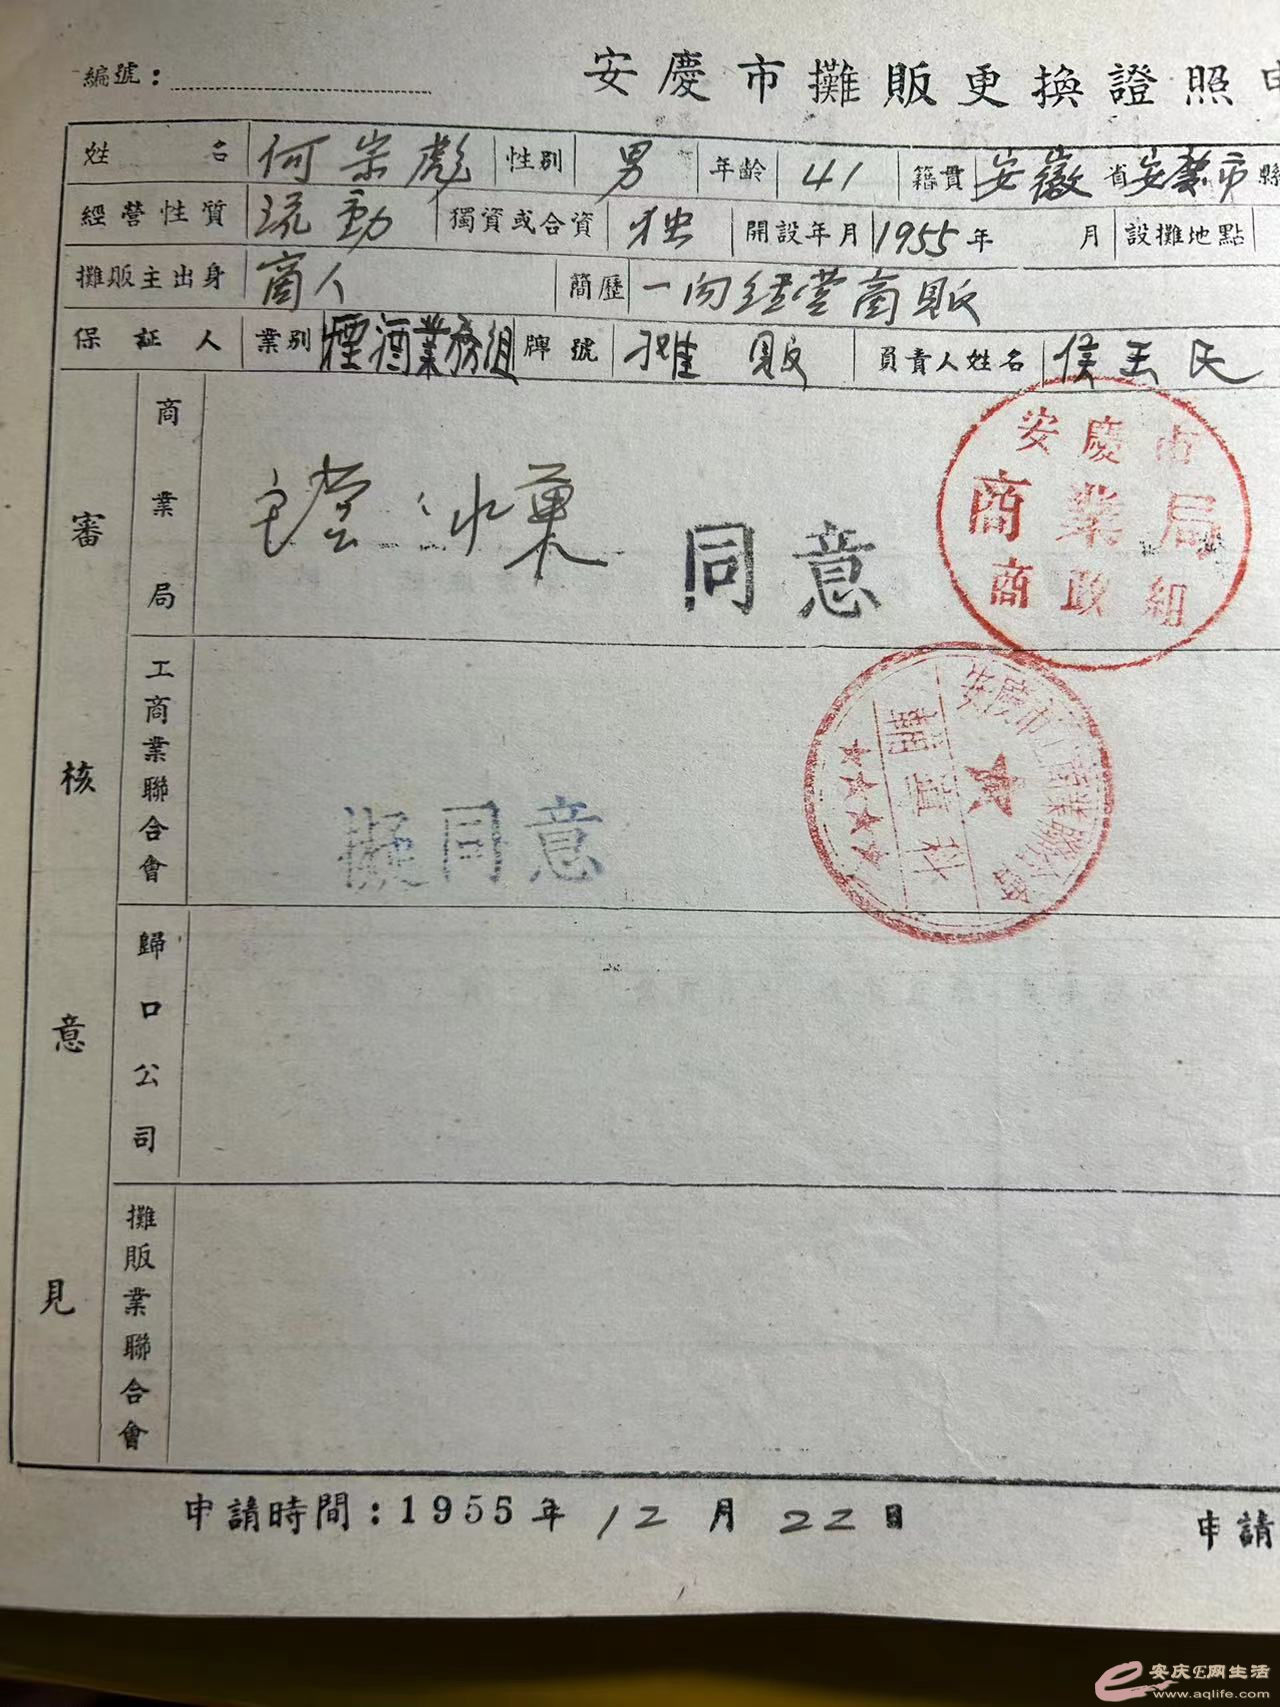 編號：
安慶市攤販更換證照申
姓名 何崇彪 性別 男 年齡 41 籍貫 安徽省安慶市縣
經營性質 流動 獨資或合資 独 開設年月 1955年 月 設攤地點
攤販主出身 商人 簡歷 一向经营商販
保証人 業別 煙酒業務組 牌號 摊販 負責人姓名 侯玉民
審核意見
商業局
同意
安慶市
商業局
商政組
工商業聯合會
擬同意
安慶市工商業聯合會
歸口公司
攤販業聯合會
申請時間：1955年12月22日
申請
安庆E网生活
www.aqlife.com